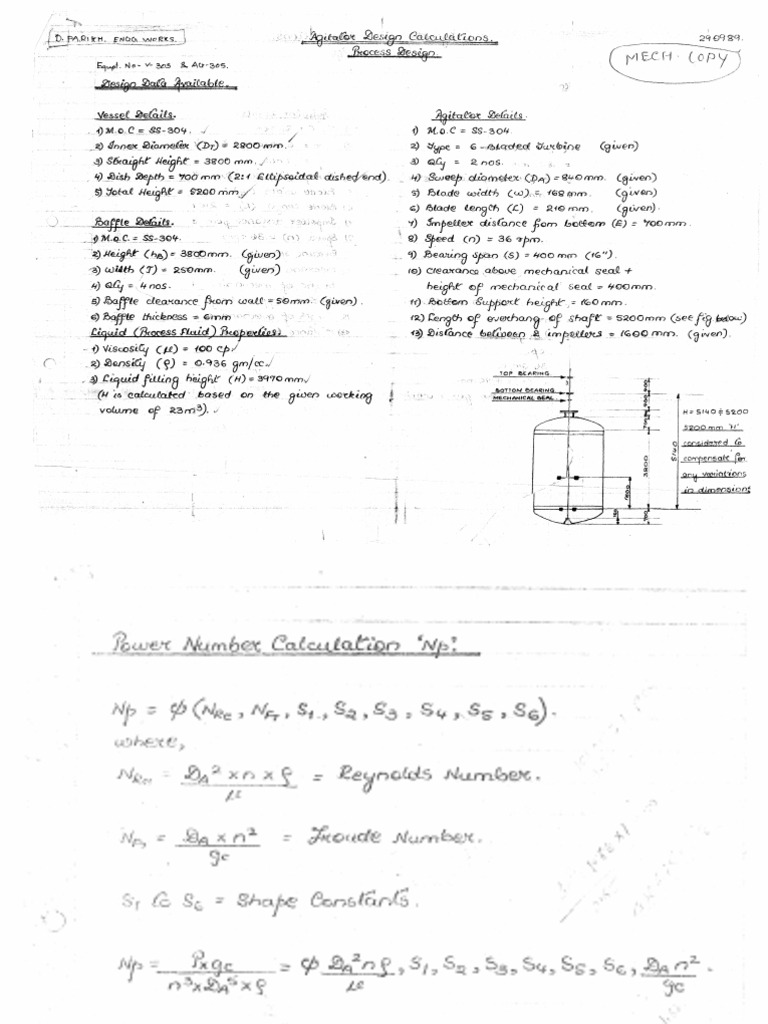 D. PARIKH. ENGG WORKS.
Agitator Design Calculations.
Process Design.
290989.
MECH. COPY
Equpt. No- V-303 & AG-305.
Design Data Available.
Vessel Details.
1) M.O.C = SS-304.
2) Inner Diameter (DT) = 2800 mm.
3) Straight Height = 3800 mm.
4) Dish Depth = 700 mm (2:1 Ellipsoidal dished end).
5) Total Height = 5200 mm.
Baffle Details.
1) M.O.C = SS-304.
2) Height (hB) = 3800mm. (given)
3) Width (J) = 250mm. (given)
4) Qty = 4 nos.
5) Baffle clearance from wall = 50mm. (given).
6) Baffle thickness = 6mm
Liquid (Process Fluid) Properties:
1) Viscosity (μ) = 100 cp
2) Density (ρ) = 0.936 gm/cc
3) Liquid filling height (H) = 3970 mm
(H is calculated based on the given working
volume of 23m³).
Agitator Details.
1) M.O.C = SS-304
2) Type = 6-Bladed Turbine (given)
3) Qty = 2 nos.
4) Sweep diameter (DA) = 840 mm. (given)
5) Blade width (W) = 168 mm. (given)
6) Blade length (L) = 210 mm. (given).
7) Impeller distance from bottom (E) = 700 mm.
8) Speed (n) = 36 rpm.
9) Bearing span (S) = 400 mm (16").
10) Clearance above mechanical seal +
height of mechanical seal = 400mm.
11) Bottom Support height = 160 mm.
12) Length of overhang of shaft = 5200mm (see fig below)
13) Distance between 2 impellers = 1600 mm. (given).
TOP BEARING
BOTTOM BEARING
MECHANICAL SEAL
3800
5140
H = 5140 ϕ 5200
5200 mm 'H'
considered to
compensate for
any variations
in dimensions
Power Number Calculation 'Np':
Np = φ (NRe, NFr, S1, S2, S3, S4, S5, S6).
where,
NRe = DA² × n × ρ / μ = Reynolds Number.
NFr = DA × n² / gc = Froude Number.
S1 to S6 = Shape Constants.
Np = P × gc / n³ × DA⁵ × ρ = φ DA² n ρ / μ, S1, S2, S3, S4, S5, S6, DA n² / gc.